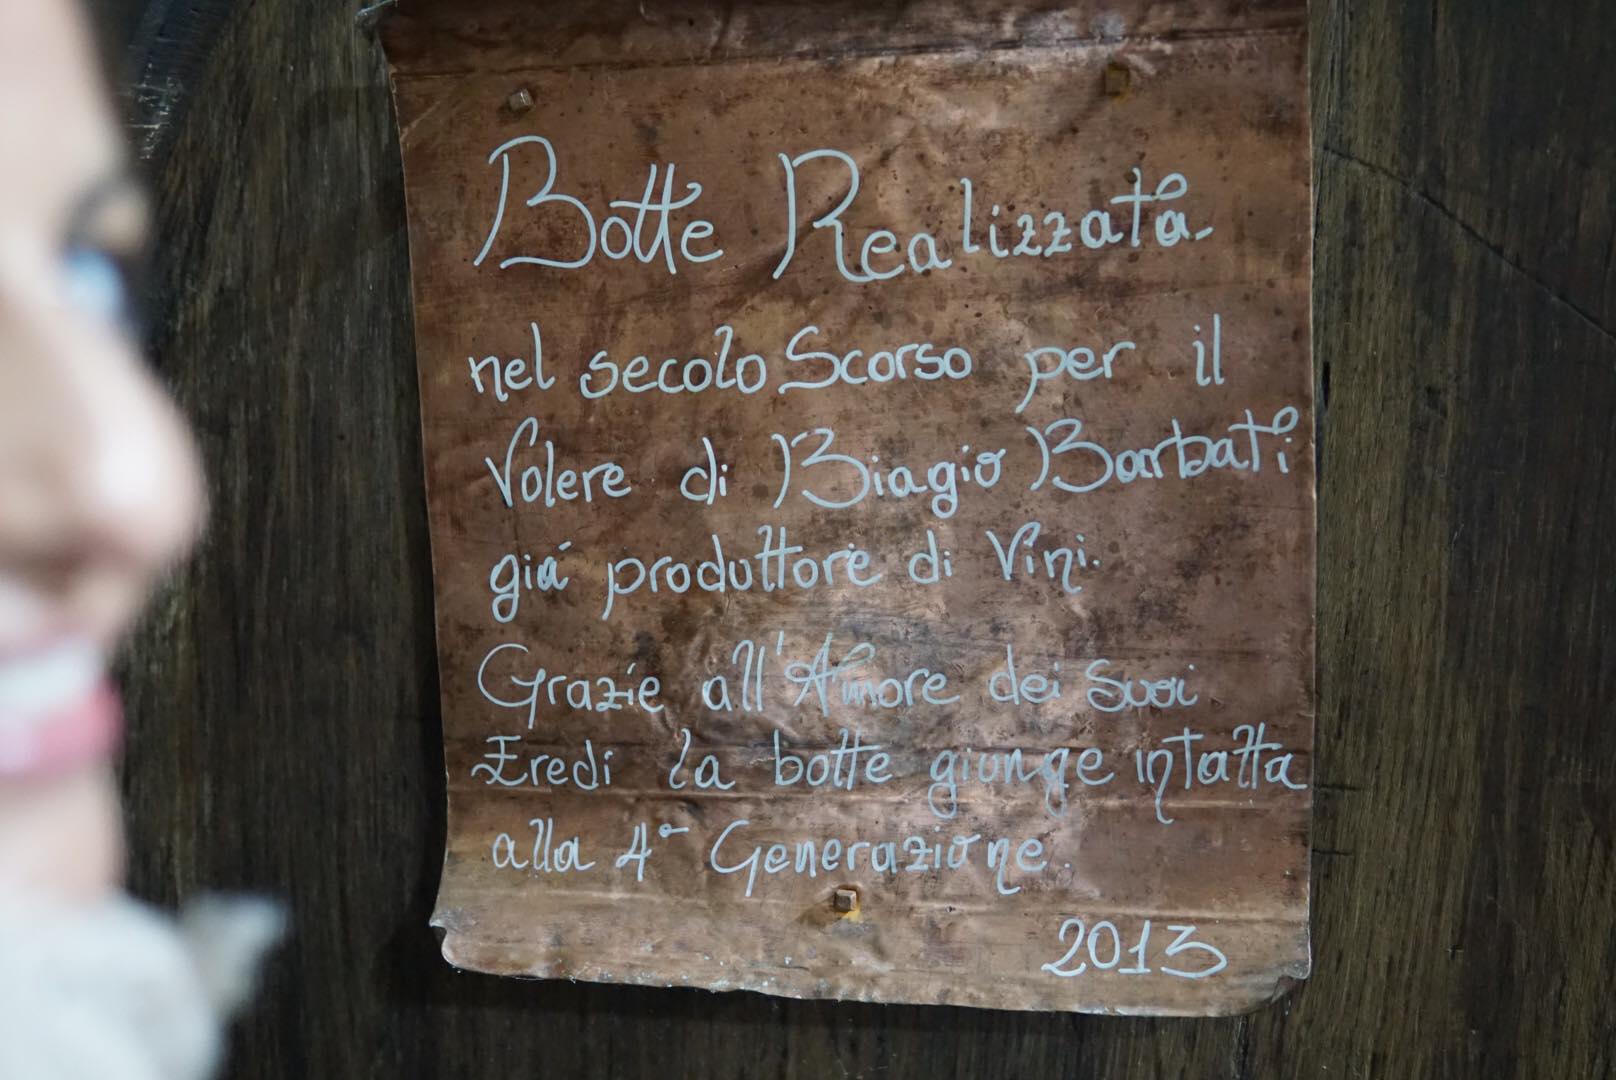 Botte Realizzata
nel secolo Scorso per il
Volere di Biagio Barbati
giá produttore di Vini.
Grazie all'Amore dei Suoi
Eredi la botte giunge intatta
alla 4° Generazione.
2013